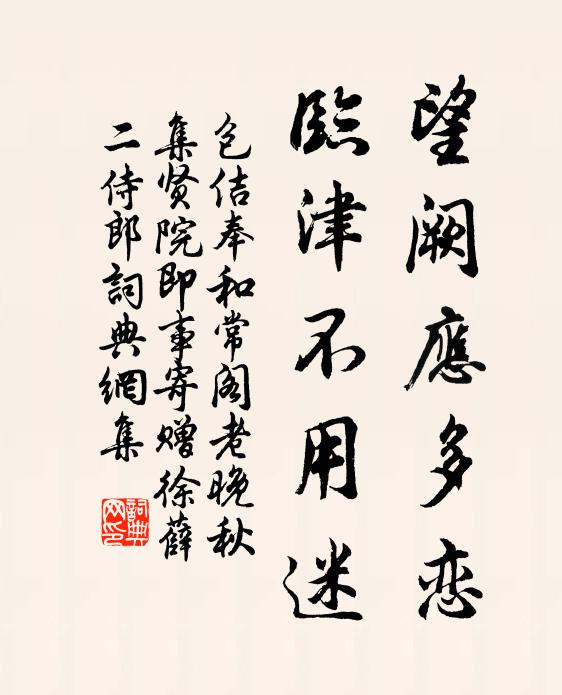 望阙應多恋
臨津不用迷
包佶奉和常阁老晚秋
集贤院即事寄赠徐薛
二侍郎詞典網集
詞典网印